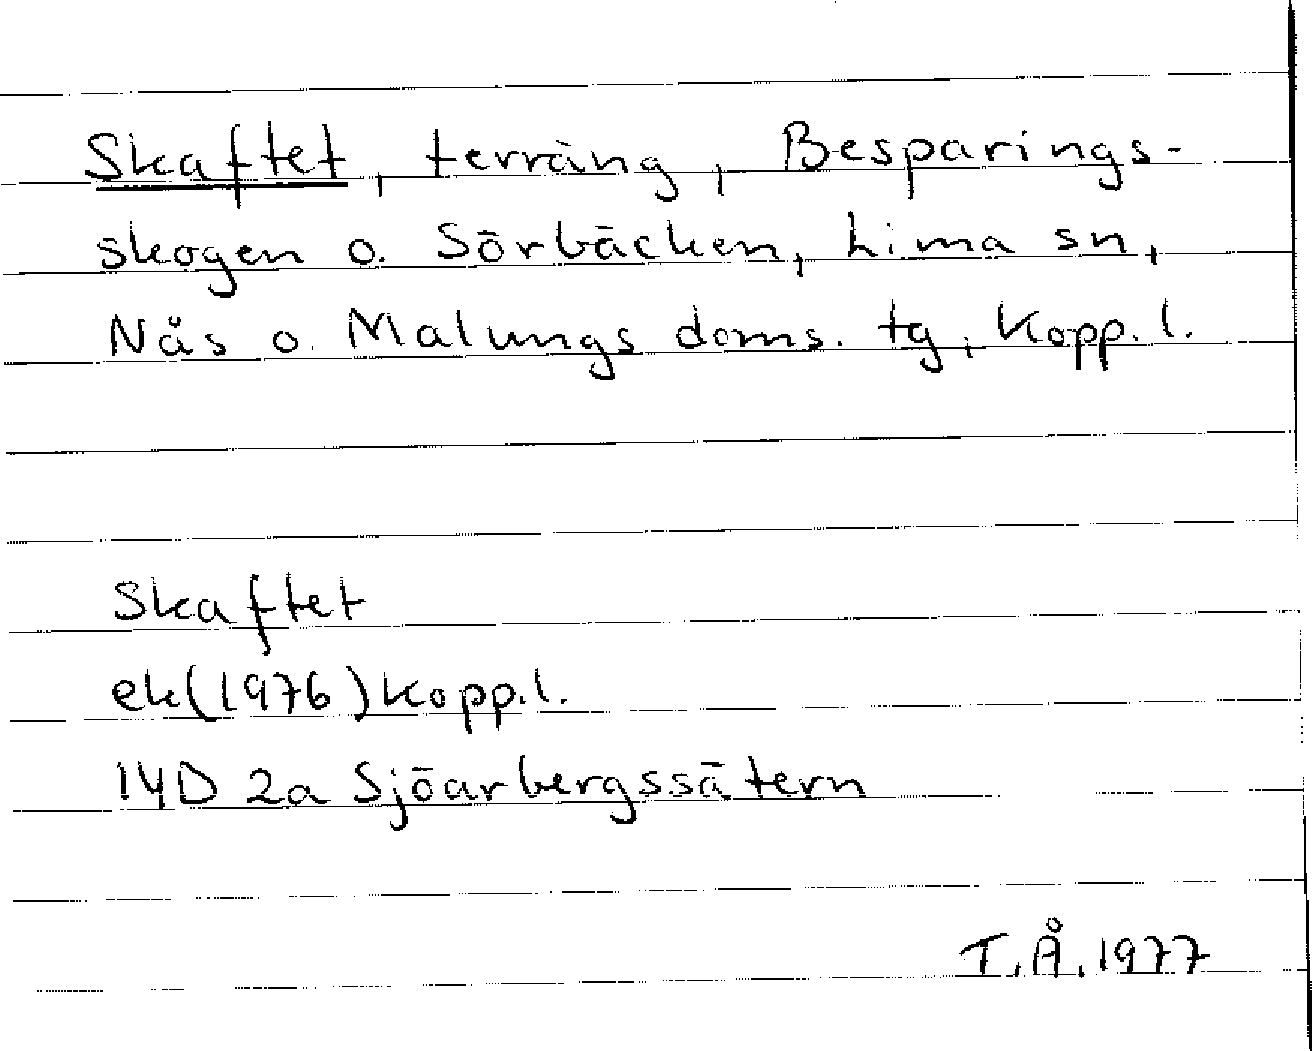 Skaftet, terräng, Besparings-
skogen o. Sörbäcken, Lima sn,
Nås o. Malungs doms. tg, Kopp. l.
Skaftet
ek (1976) Kopp. l.
14D 2a Sjöarbergssätern
T.Å. 1977